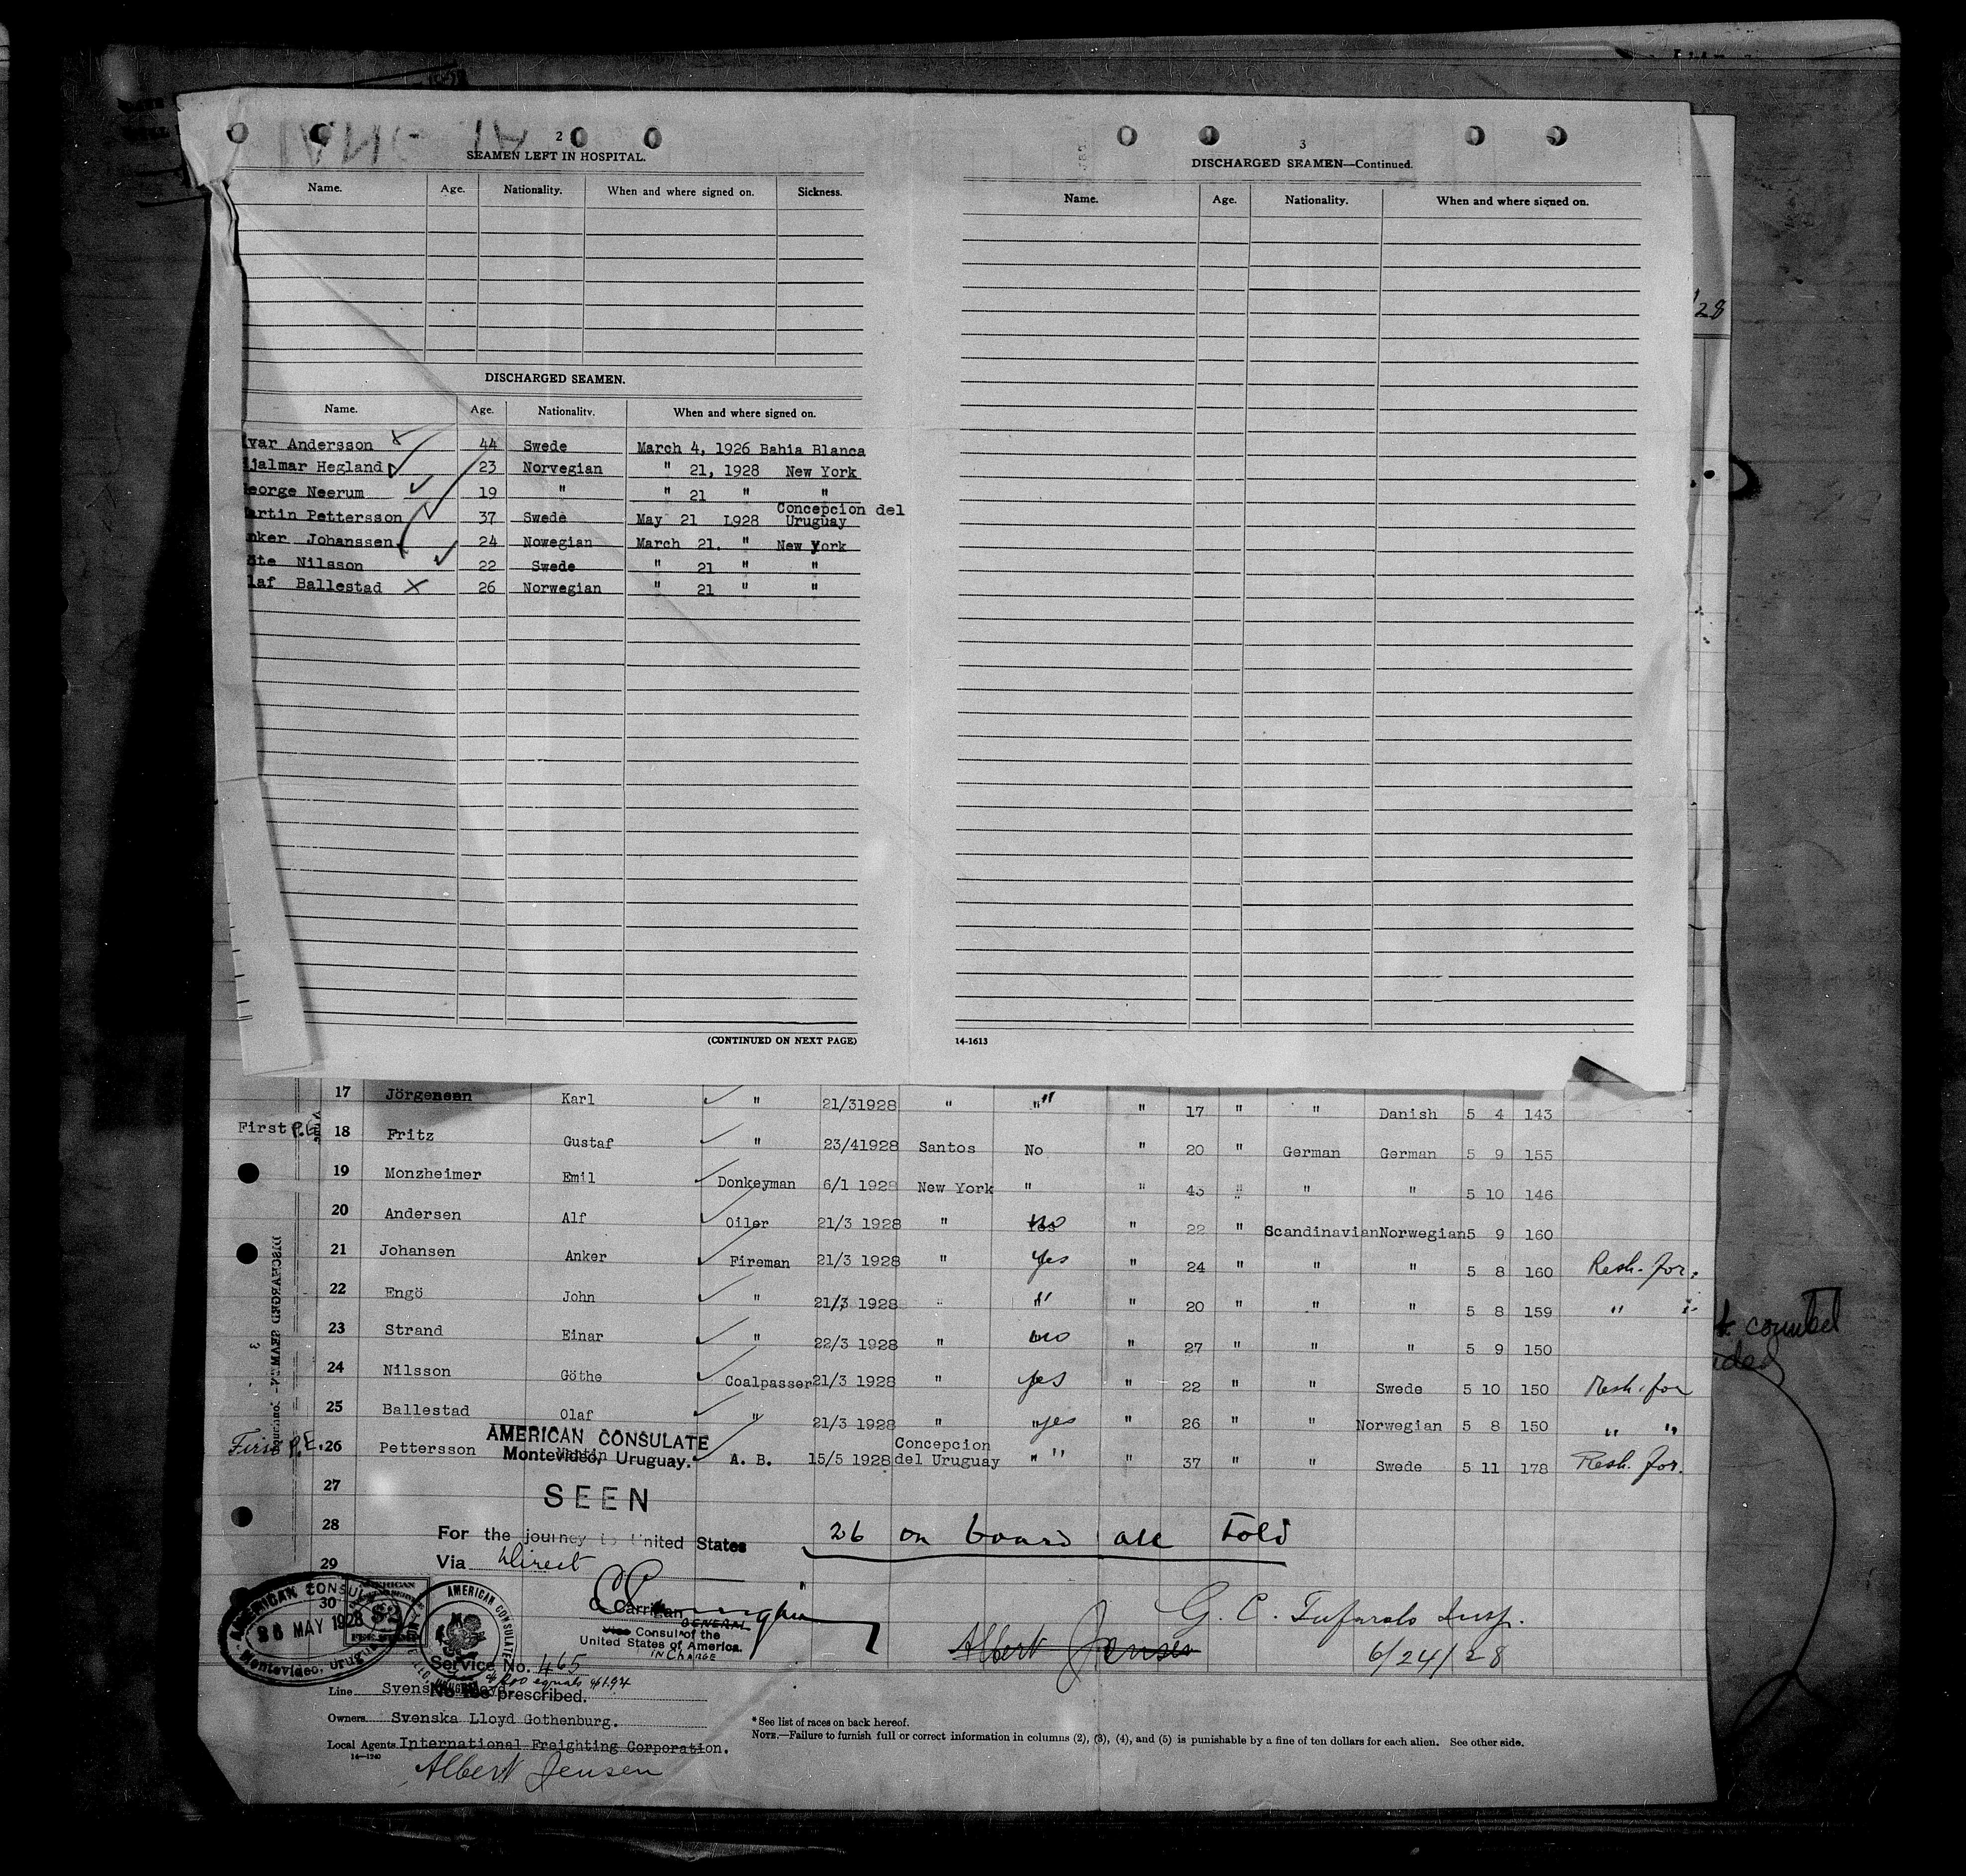 2
SEAMEN LEFT IN HOSPITAL.
Name. Age. Nationality. When and where signed on. Sickness.
DISCHARGED SEAMEN.
Name. Age. Nationality. When and where signed on.
var Andersson 44 Swede March 4, 1926 Bahia Blanca
jalmar Hegland 23 Norwegian " 21, 1928 New York
eorge Neerum 19 " " 21 " "
artin Pettersson 37 Swede May 21 1928 Concepcion del Uruguay
nker Johanssen 24 Nowegian March 21. " New York
öte Nilsson 22 Swede " 21 " "
laf Ballestad 26 Norwegian " 21 " "
(CONTINUED ON NEXT PAGE)
3
DISCHARGED SEAMEN—Continued.
Name. Age. Nationality. When and where signed on.
14-1613
/28
17 Jörgensen Karl " 21/31928 " " " 17 " " Danish 5 4 143
First P.E. 18 Fritz Gustaf " 23/41928 Santos No " 20 " German German 5 9 155
19 Monzheimer Emil Donkeyman 6/1 1928 New York " " 43 " " " 5 10 146
20 Andersen Alf Oiler 21/3 1928 " no " 22 " Scandinavian Norwegian 5 9 160
21 Johansen Anker Fireman 21/3 1928 " Yes " 24 " " " 5 8 160 Resh. for.
22 Engö John " 21/3 1928 " " " 20 " " " 5 8 159 " "
23 Strand Einar " 22/3 1928 " no " 27 " " " 5 9 150
24 Nilsson Göthe Coalpasser 21/3 1928 " yes " 22 " " Swede 5 10 150 Resh. for
25 Ballestad Olaf " 21/3 1928 " "yes " 26 " " Norwegian 5 8 150 " "
First P.E. 26 Pettersson Martin A. B. 15/5 1928 Concepcion del Uruguay " " " 37 " " Swede 5 11 178 Resh. for.
27
28
29
30
DISCHARGED SEAMEN
3
AMERICAN CONSULATE
Montevideo, Uruguay.
SEEN
For the journey to United States
Via Direct
26 on board all told
C. Carrigan
GENERAL
Vice Consul of the
United States of America.
IN CHARGE
AMERICAN CONSULATE
26 MAY 1928
Montevideo, Uruguay
AMERICAN
$2
FEE STAMP
AMERICAN CONSULATE
G. C. Tufarolo Insp.
Albert Jensen
6/24/28
Service No. 465
$2.00 equals $1.94
No fee prescribed.
Line Svenska Lloyd
Owners Svenska Lloyd Gothenburg.
Local Agents International Freighting Corporation.
14—1240
Albert Jensen
* See list of races on back hereof.
NOTE.—Failure to furnish full or correct information in columns (2), (3), (4), and (5) is punishable by a fine of ten dollars for each alien. See other side.